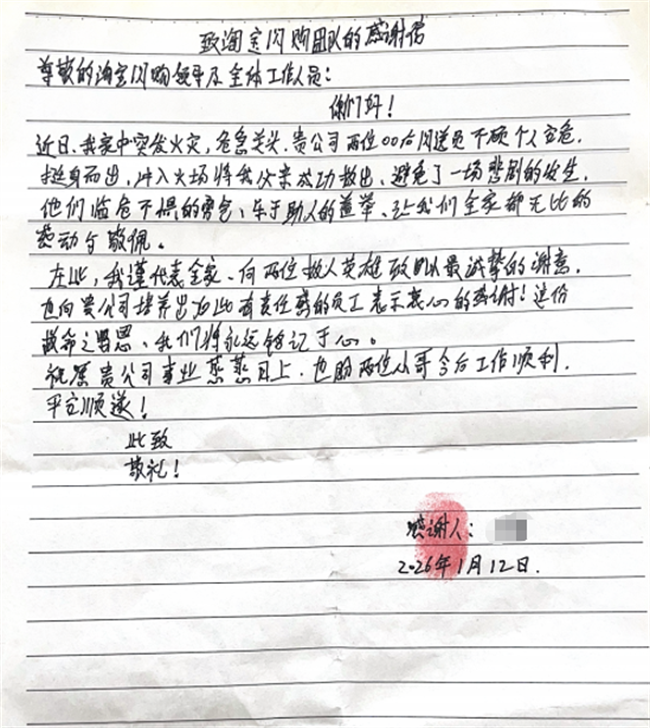 致淘宝闪购团队的感谢信
尊敬的淘宝闪购领导及全体工作人员：
你们好！
近日，我家中突发火灾，危急关头，贵公司两位00后闪送员不顾个人安危，
挺身而出，冲入火场将我父亲成功救出，避免了一场悲剧的发生，
他们临危不惧的勇气、乐于助人的善举，让我们全家都无比的
感动与敬佩。
在此，我谨代表全家，向两位救人英雄致以最诚挚的谢意，
也向贵公司培养出如此有责任感的员工表示衷心的感谢！这份
救命之恩恩，我们将永远铭记于心。
祝愿贵公司事业蒸蒸日上，也盼两位小哥今后工作顺利，
平安顺遂！
此致
敬礼！
感谢人：
2026年1月12日.